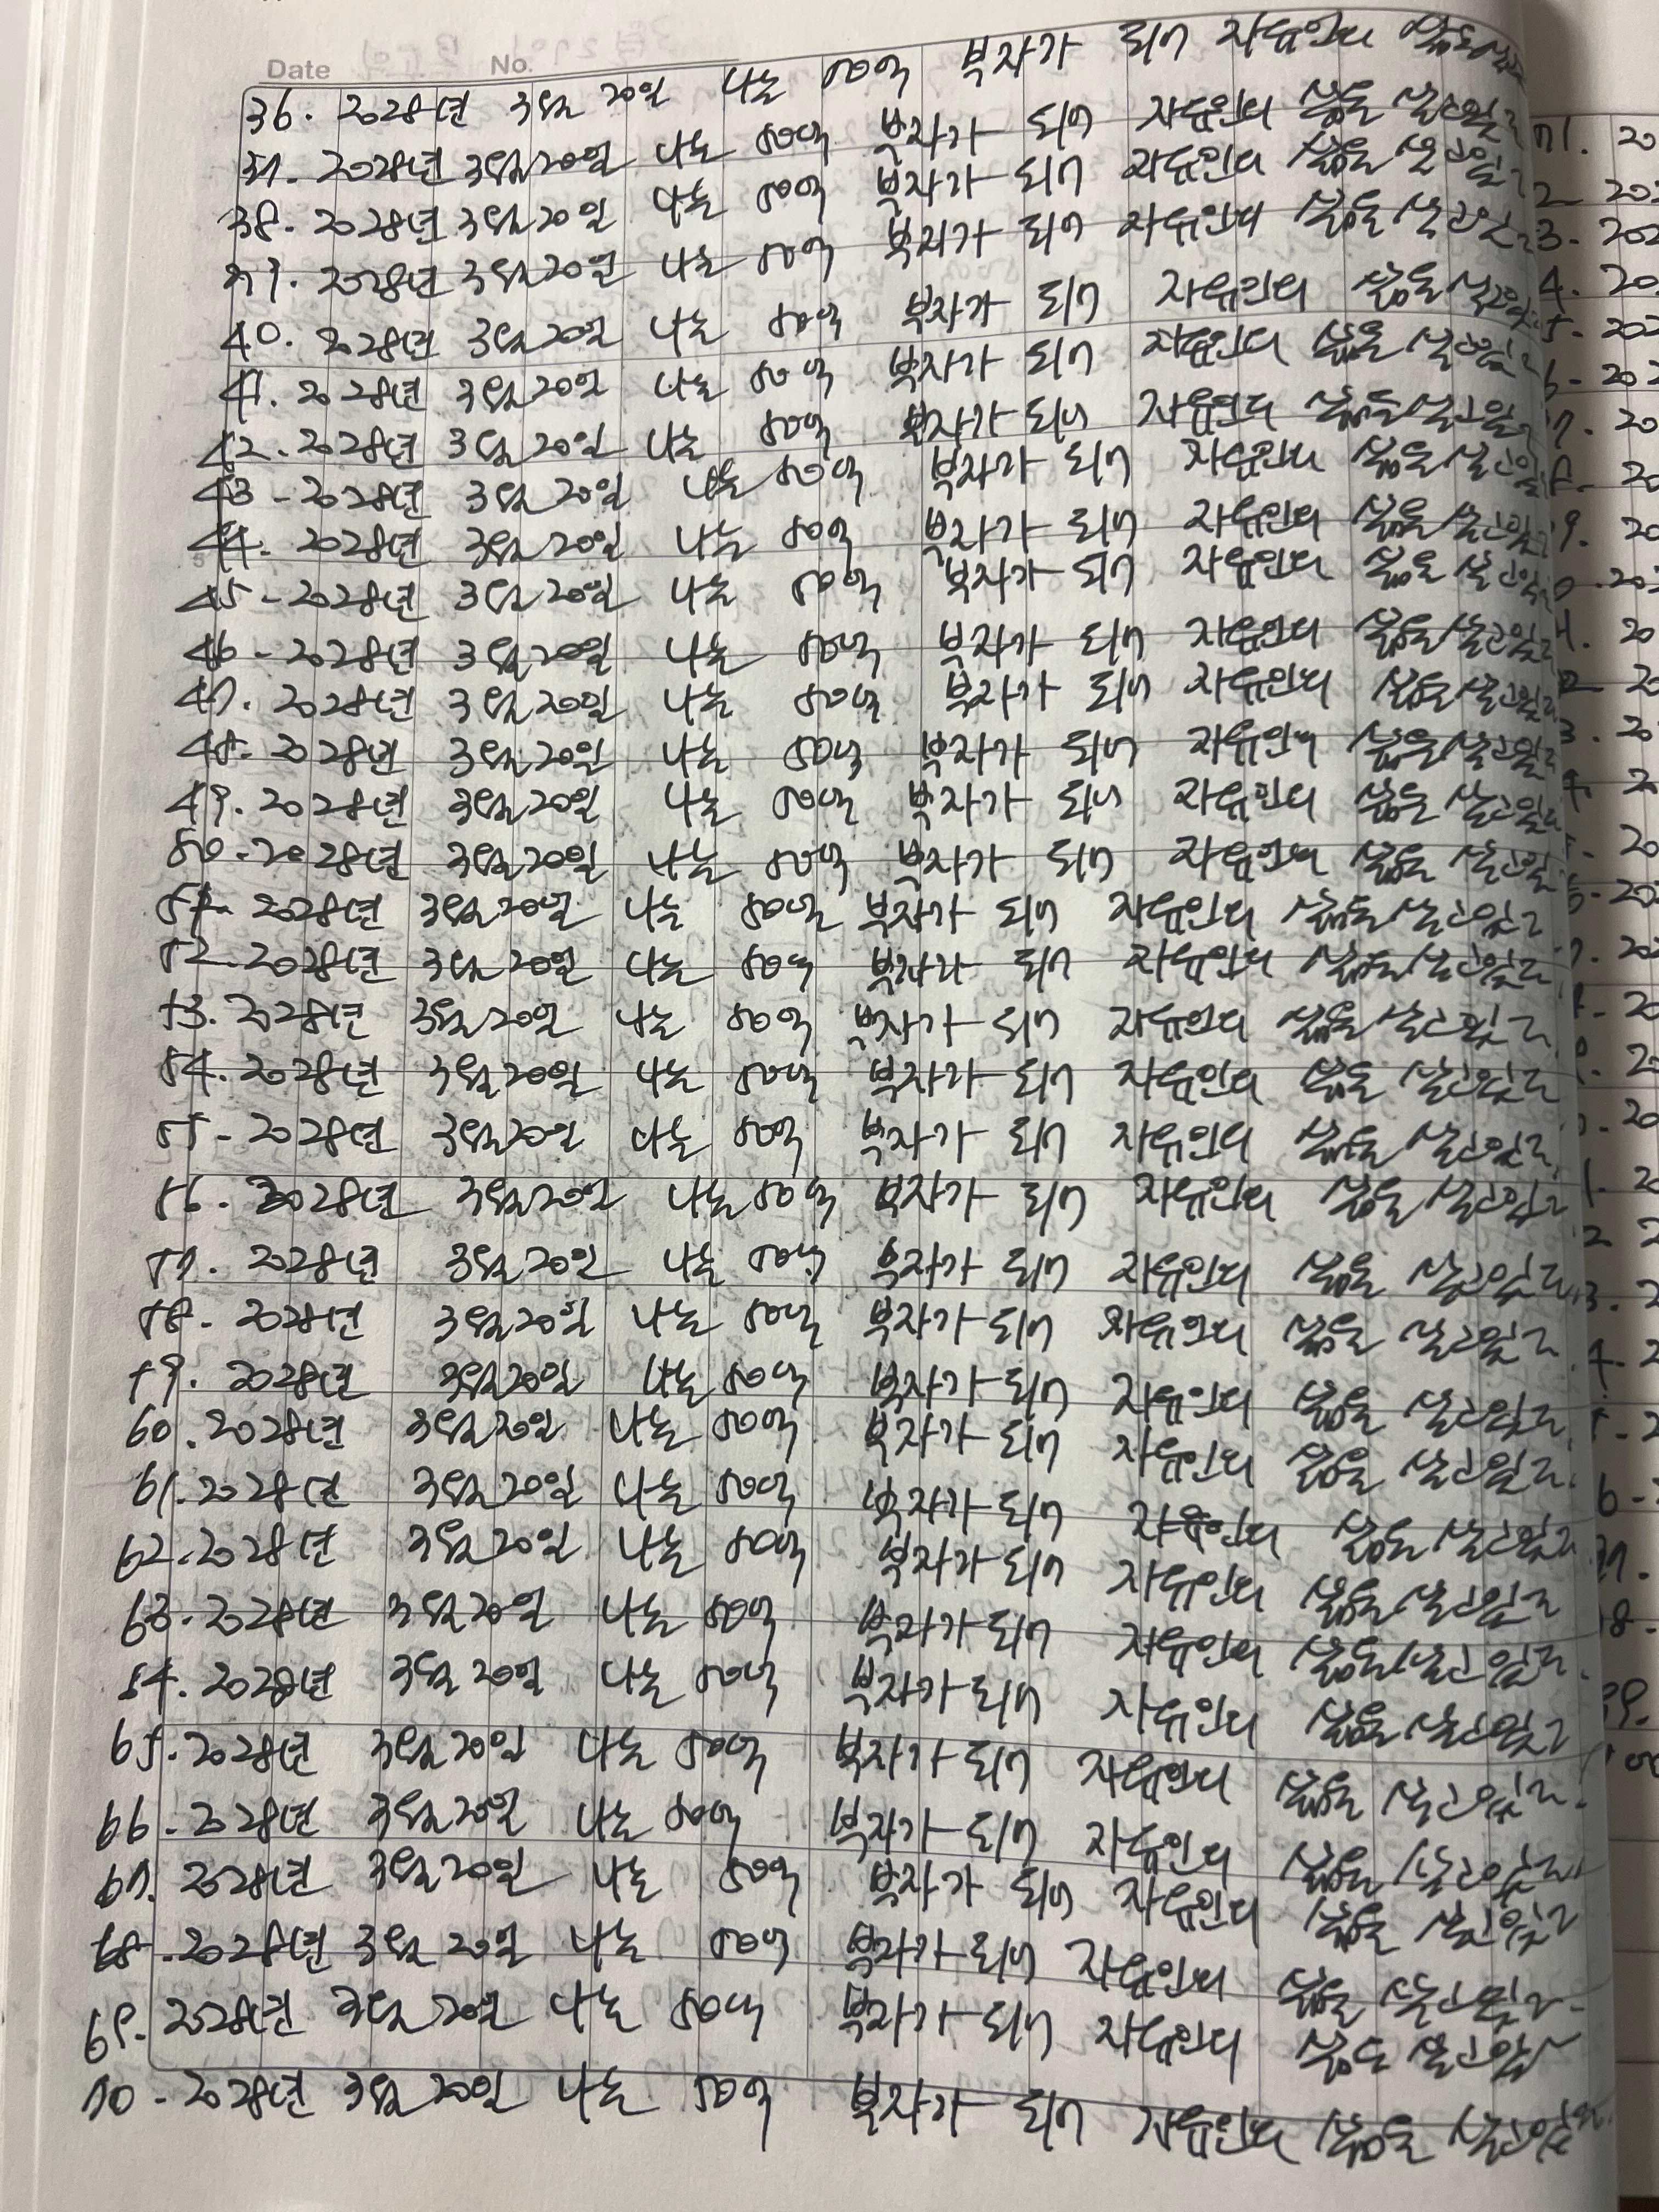 Date No.
36. 2028년 3월 20일 나는 50억 부자가 되어 자유인의 삶을 살고
37. 2028년 3월 20일 나는 50억 부자가 되어 자유인의 삶을 살고있다
38. 2028년 3월 20일 나는 50억 부자가 되어 자유인의 삶을 살고있다
39. 2028년 3월 20일 나는 50억 부자가 되어 자유인의 삶을 살고있다
40. 2028년 3월 20일 나는 50억 부자가 되어 자유인의 삶을 살고있다
41. 2028년 3월 20일 나는 50억 부자가 되어 자유인의 삶을 살고있다
42. 2028년 3월 20일 나는 50억 부자가 되어 자유인의 삶을 살고있다
43 - 2028년 3월 20일 나는 50억 부자가 되어 자유인의 삶을 살고있다
44. 2028년 3월 20일 나는 50억 부자가 되어 자유인의 삶을 살고있다
45 - 2028년 3월 20일 나는 50억 부자가 되어 자유인의 삶을 살고있다
46 - 2028년 3월 20일 나는 50억 부자가 되어 자유인의 삶을 살고있다
47. 2028년 3월 20일 나는 50억 부자가 되어 자유인의 삶을 살고있다
48. 2028년 3월 20일 나는 50억 부자가 되어 자유인의 삶을 살고있다
49. 2028년 3월 20일 나는 50억 부자가 되어 자유인의 삶을 살고있다
50 - 2028년 3월 20일 나는 50억 부자가 되어 자유인의 삶을 살고있다
51 - 2028년 3월 20일 나는 50억 부자가 되어 자유인의 삶을 살고있다
52. 2028년 3월 20일 나는 50억 부자가 되어 자유인의 삶을 살고있다
53. 2028년 3월 20일 나는 50억 부자가 되어 자유인의 삶을 살고있다.
54. 2028년 3월 20일 나는 50억 부자가 되어 자유인의 삶을 살고있다
55 - 2028년 3월 20일 나는 50억 부자가 되어 자유인의 삶을 살고있다.
56. 2028년 3월 20일 나는 50억 부자가 되어 자유인의 삶을 살고있다
57. 2028년 3월 20일 나는 50억 부자가 되어 자유인의 삶을 살고있다
58. 2028년 3월 20일 나는 50억 부자가 되어 자유인의 삶을 살고있다
59. 2028년 3월 20일 나는 50억 부자가 되어 자유인의 삶을 살고있다
60. 2028년 3월 20일 나는 50억 부자가 되어 자유인의 삶을 살고있다.
61. 2028년 3월 20일 나는 50억 부자가 되어 자유인의 삶을 살고있다
62. 2028년 3월 20일 나는 50억 부자가 되어 자유인의 삶을 살고있다
63. 2028년 3월 20일 나는 50억 부자가 되어 자유인의 삶을 살고있다.
54. 2028년 3월 20일 나는 50억 부자가 되어 자유인의 삶을 살고있다
65. 2028년 3월 20일 나는 50억 부자가 되어 자유인의 삶을 살고있다.
66 - 2028년 3월 20일 나는 50억 부자가 되어 자유인의 삶을 살고있다.
67. 2028년 3월 20일 나는 50억 부자가 되어 자유인의 삶을 살고있다
68 - 2028년 3월 20일 나는 50억 부자가 되어 자유인의 삶을 살고있다.
69. 2028년 3월 20일 나는 50억 부자가 되어 자유인의 삶을 살고있다
70 - 2028년 3월 20일 나는 50억 부자가 되어 자유인의 삶을 살고있다.